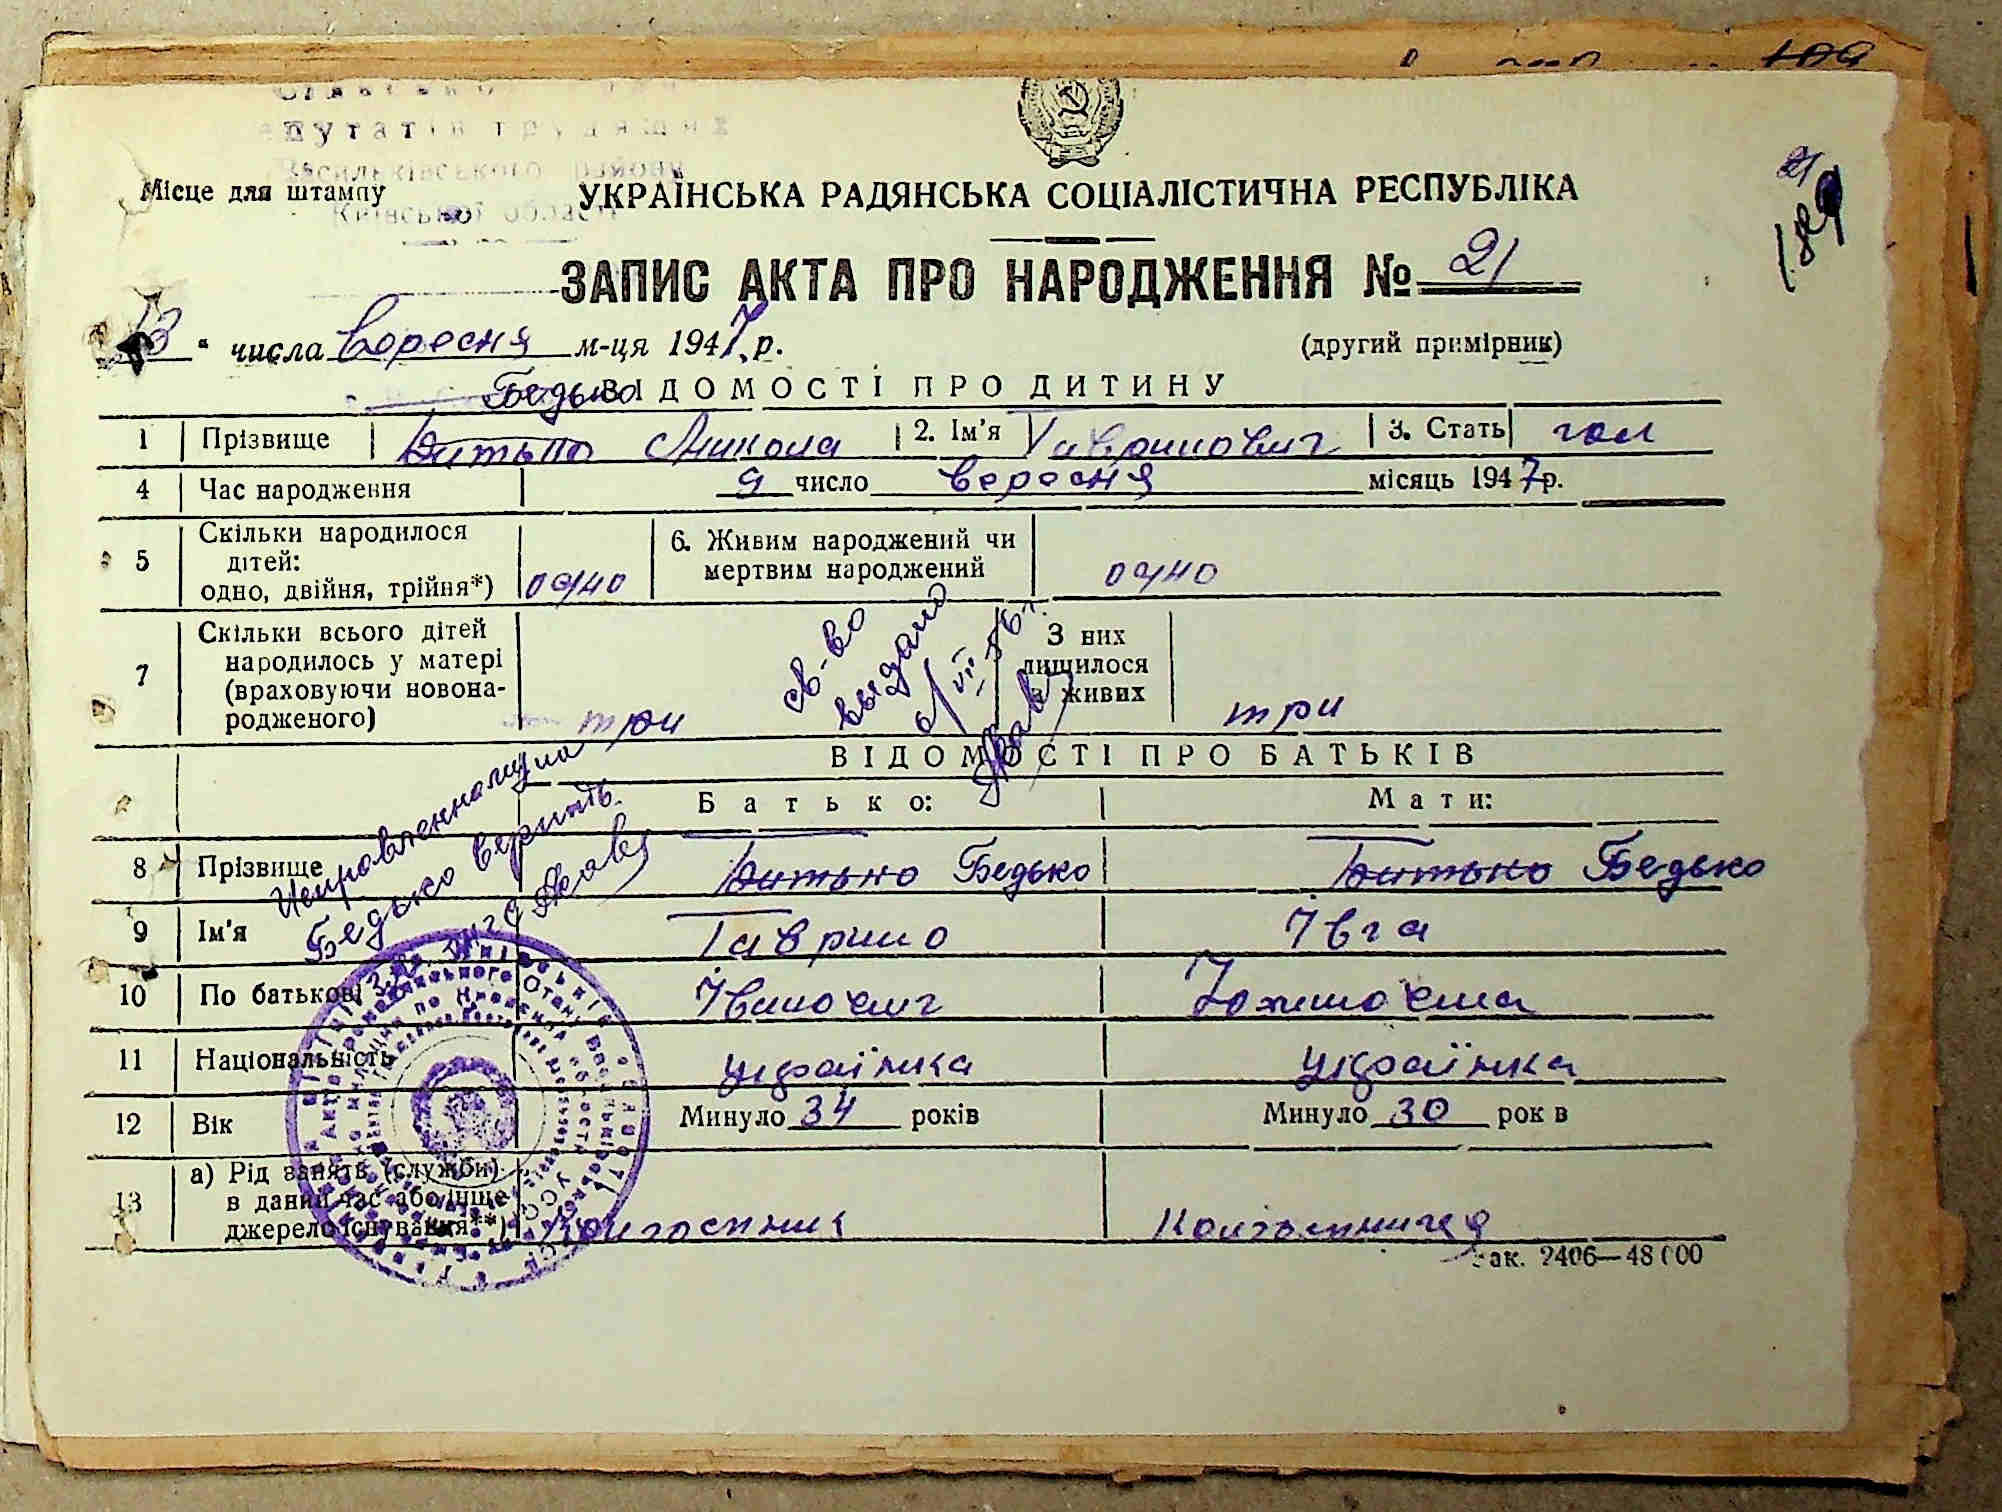 путатів трудящих
Васильківського району
Місце для штампу
Київської області
УКРАЇНСЬКА РАДЯНСЬКА СОЦІАЛІСТИЧНА РЕСПУБЛІКА
189
ЗАПИС АКТА ПРО НАРОДЖЕННЯ № 21
13 " числа вересня м-ця 1947 р.
(другий примірник)
ВІДОМОСТІ ПРО ДИТИНУ
Бедько
1 Прізвище Битько Микола 2. Ім'я Гаврилович 3. Стать чол
4 Час народження 9 число вересня місяць 1947 р.
5 Скільки народилося дітей: одно, двійня, трійня*) одно
6. Живим народжений чи мертвим народжений одно
7 Скільки всього дітей народилось у матері (враховуючи новонародженого) три
З них лишилося в живих три
св-во
выдано
ВІДОМОСТІ ПРО БАТЬКІВ
Батько: Мати:
Исправленному на
Бедько верить.
8 Прізвище Битько Бедько Битько Бедько
9 Ім'я Гаврило Ївга
10 По батькові Іванович Юхимовна
11 Національність українка українка
12 Вік Минуло 34 років Минуло 30 рок в
13 а) Рід занять (служби) в даний час або інше джерело існування**) Колгоспник Колгоспниця
Зак. 2406—48000